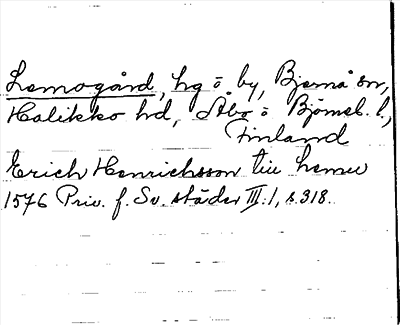 Lemogård, hg o by, Bjernå sn,
Halikko hd, Åbo o Björneb. l.,
Finland
Erich Henrichsson till Lemu
1576 Priv. f. Sv. städer III:1, s. 318.